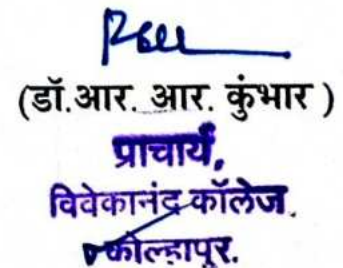 (डॉ.आर. आर. कुंभार )
प्राचार्य,
विवेकानंद कॉलेज.
कोल्हापुर.